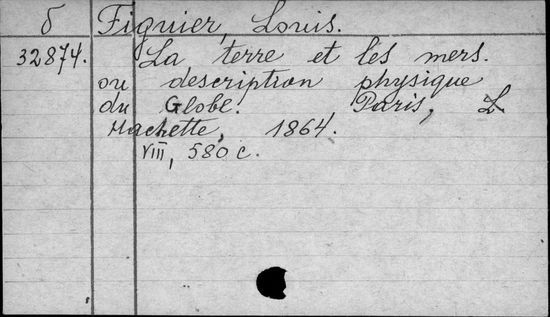 б Figuier, Louis.
32874. La terre et les mers.
ou description physique
du Globe. Paris, L.
Hachette, 1864.
VIII, 580 c.